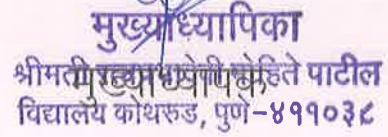 मुख्याध्यापिका
श्रीमती मोहिते पाटील
मुख्याध्यापक
विद्यालय कोथरुड, पुणे-४११०३८